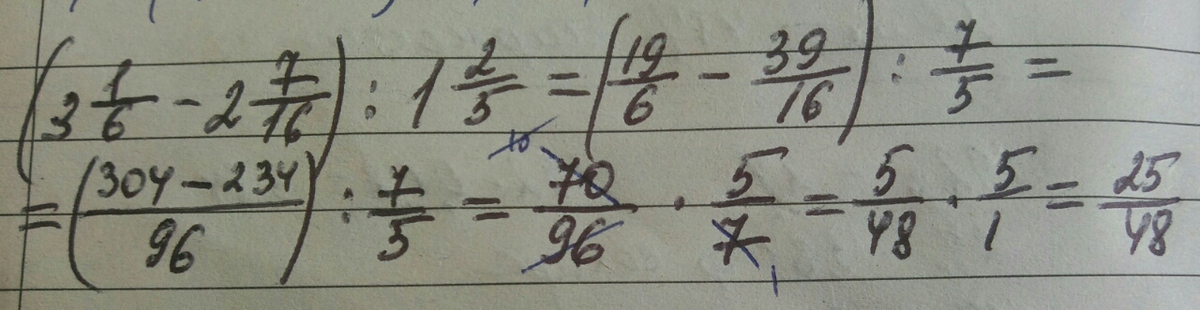 (3 1/6 - 2 7/16) : 1 2/5 = (19/6 - 39/16) : 7/5 =
= (304 - 234 / 96) : 7/5 = 70/96 · 5/7 = 5/48 · 5/1 = 25/48